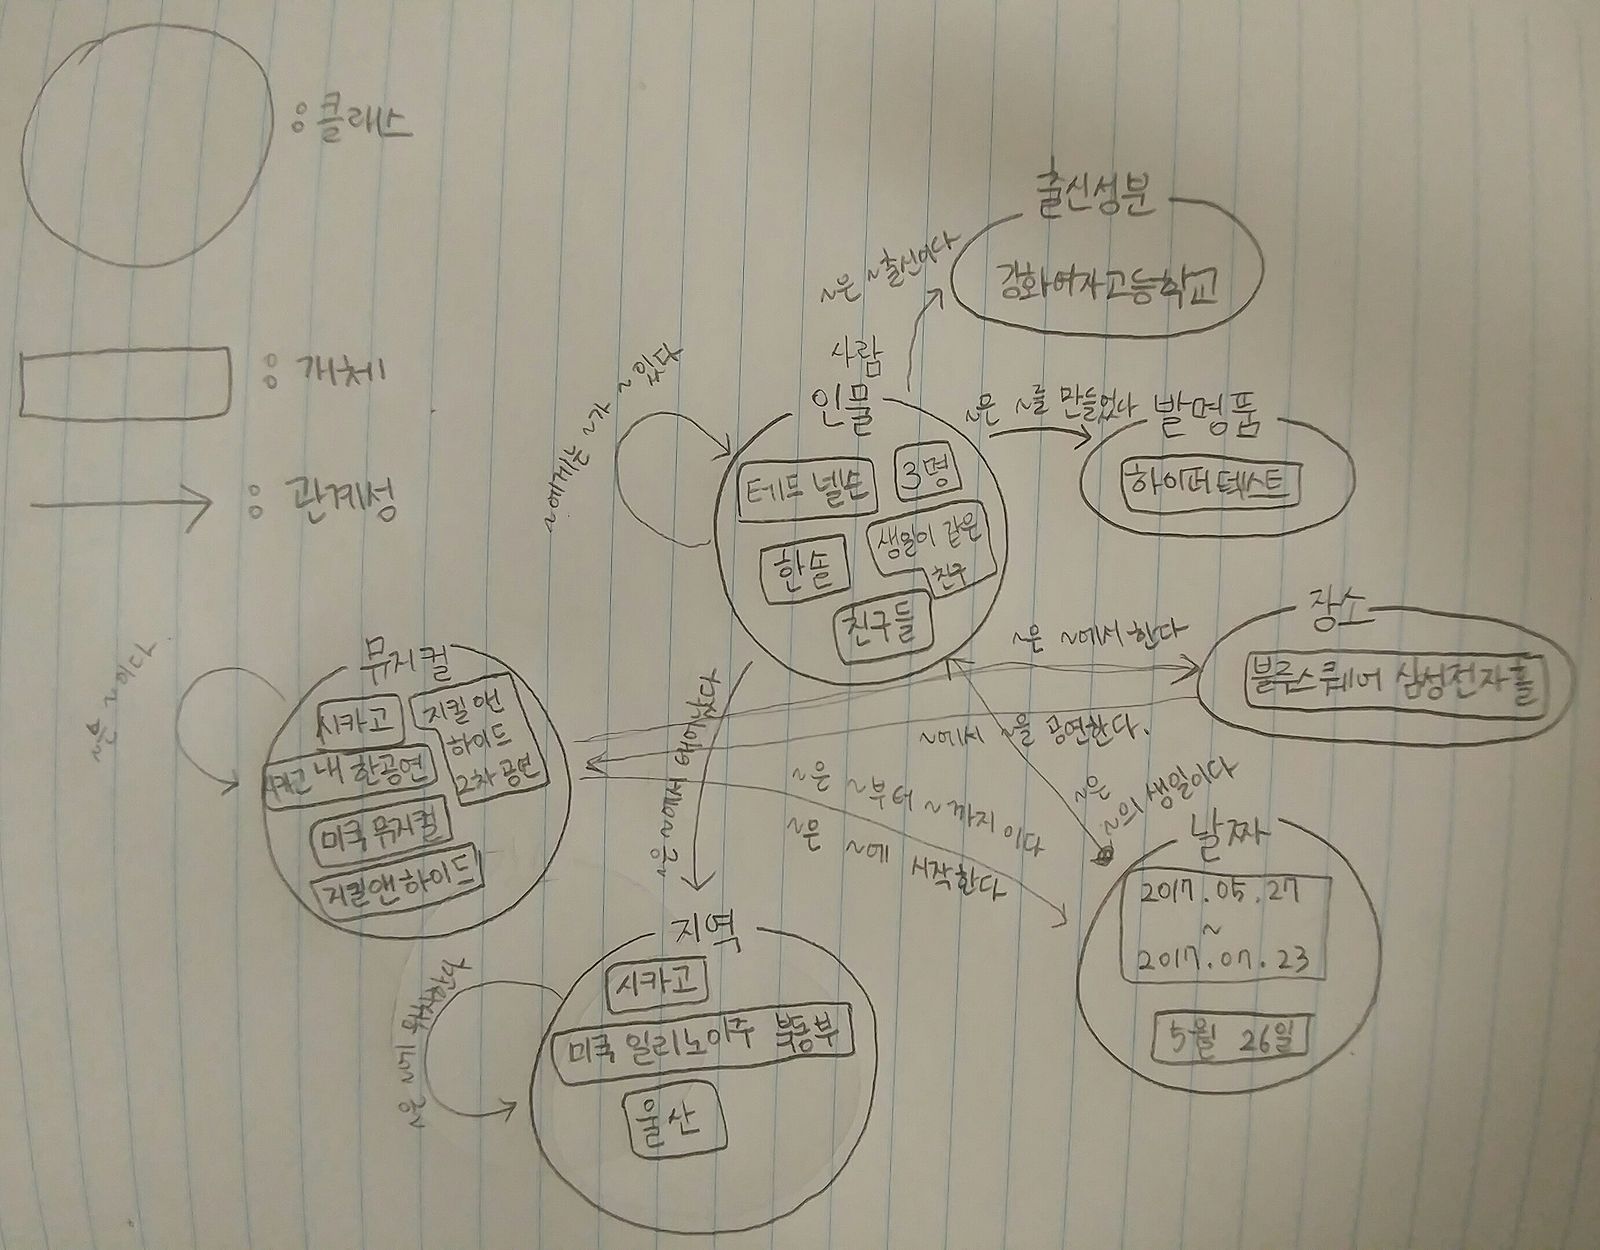 : 클래스
: 개체
: 관계성
출신성분
강화여자고등학교
~은 ~출신이다
사람
인물
테드 넬슨
3명
한솔
생일이 같은
친구
친구들
~에게는 ~가 ~ 있다
~은 ~를 만들었다
발명품
하이퍼텍스트
장소
블루스퀘어 삼성전자홀
~은 ~에서 한다
~에서 ~을 공연한다.
뮤지컬
시카고
지킬앤
하이드
2차 공연
시카고 내한공연
미국 뮤지컬
지킬앤하이드
~은 ~이다
~은 ~에서 태어났다
~은 ~부터 ~까지이다
~은 ~에 시작한다
~은
~의 생일이다
날짜
2017.05.27
~
2017.07.23
5월 26일
지역
시카고
미국 일리노이주 북동부
울산
~은 ~에 위치한다